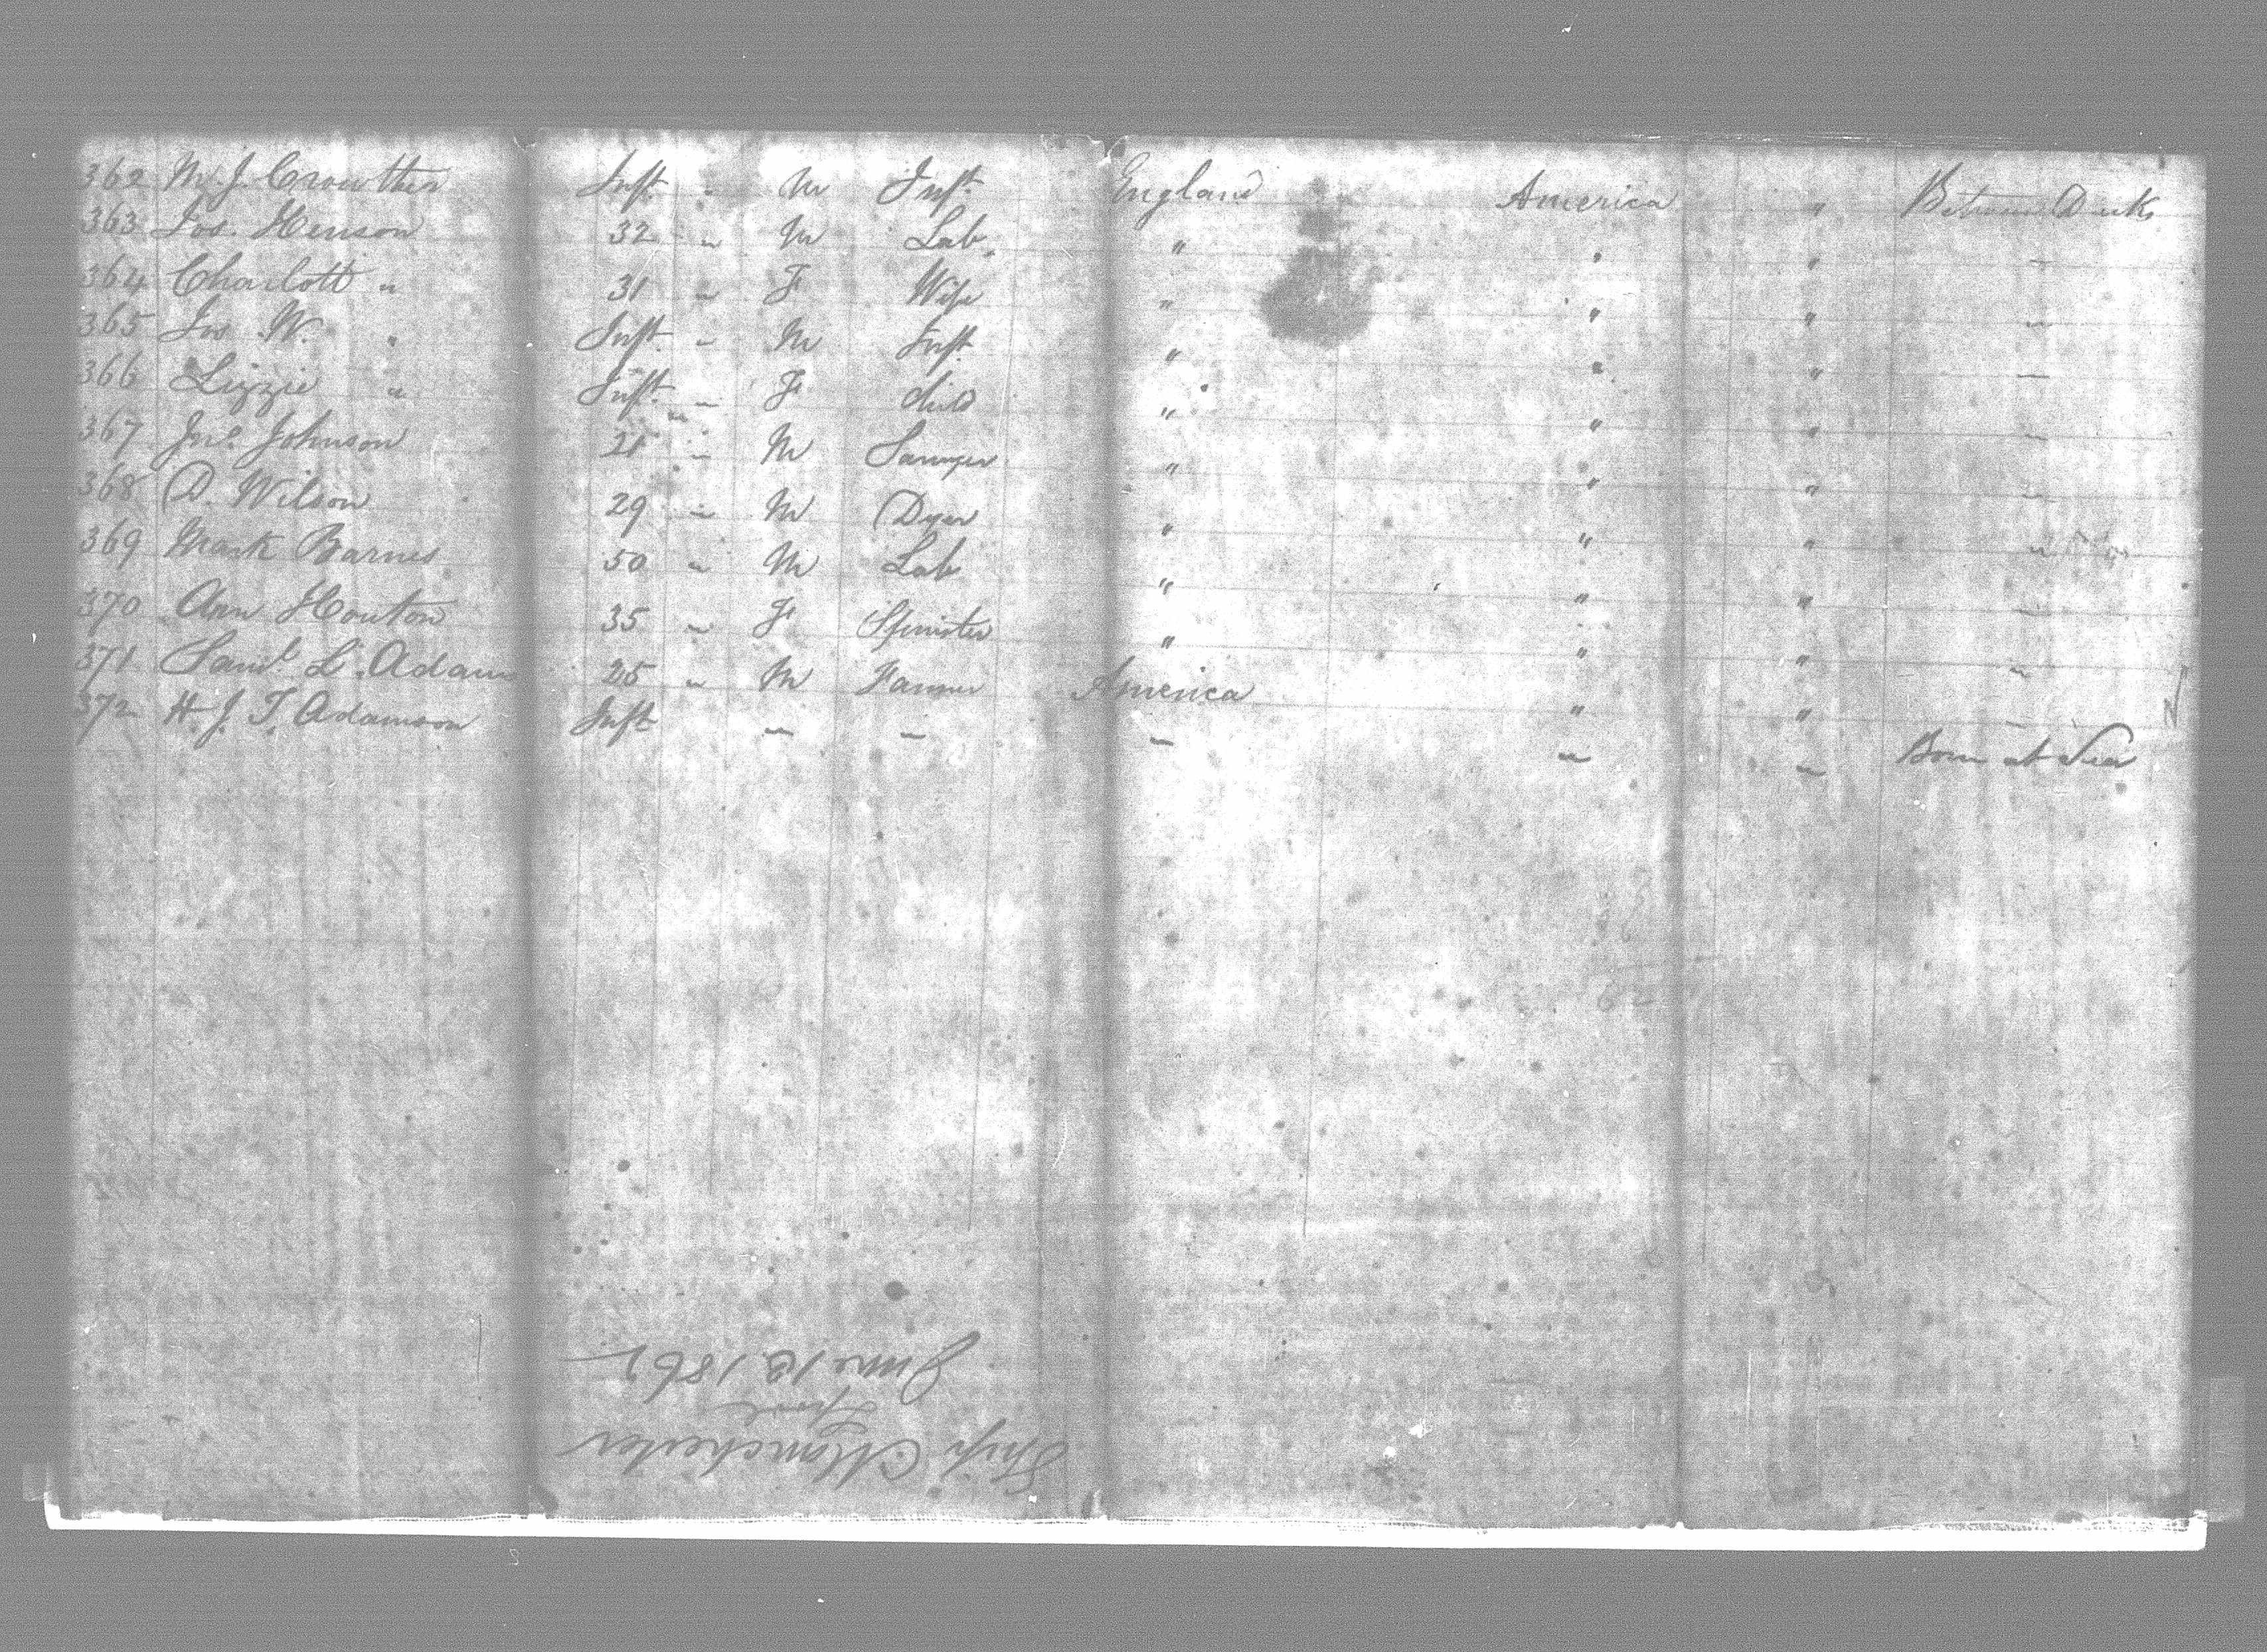 362 M. J. Crowther Inft. " M Inft. England America " Between Decks
363 Jos. Henson 32 " M Lab. " " " "
364 Charlott " 31 " F Wife " " " "
365 Jos W. " Inft. " M Inft. " " " "
366 Lizzie " Inft. " F child " " " "
367 Jno. Johnson 21 " M Sawyer " " " "
368 D. Wilson 29 " M Dyer " " " "
369 Mark Barnes 50 " M Lab " " " "
370 Ann Houton 35 " F Spinster " " " "
371 Saml. L. Adam 25 " M Farmer America " " "
372 H. J. T. Adamson Inft " " " " " Born at Sea
Ship Manchester
June 13 186